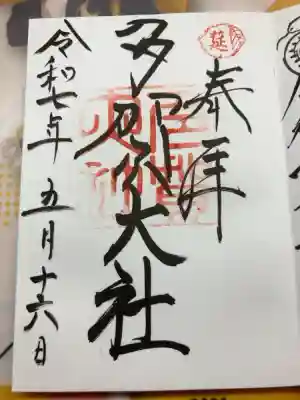 奉拝
延
多賀大社
令和七年五月十六日